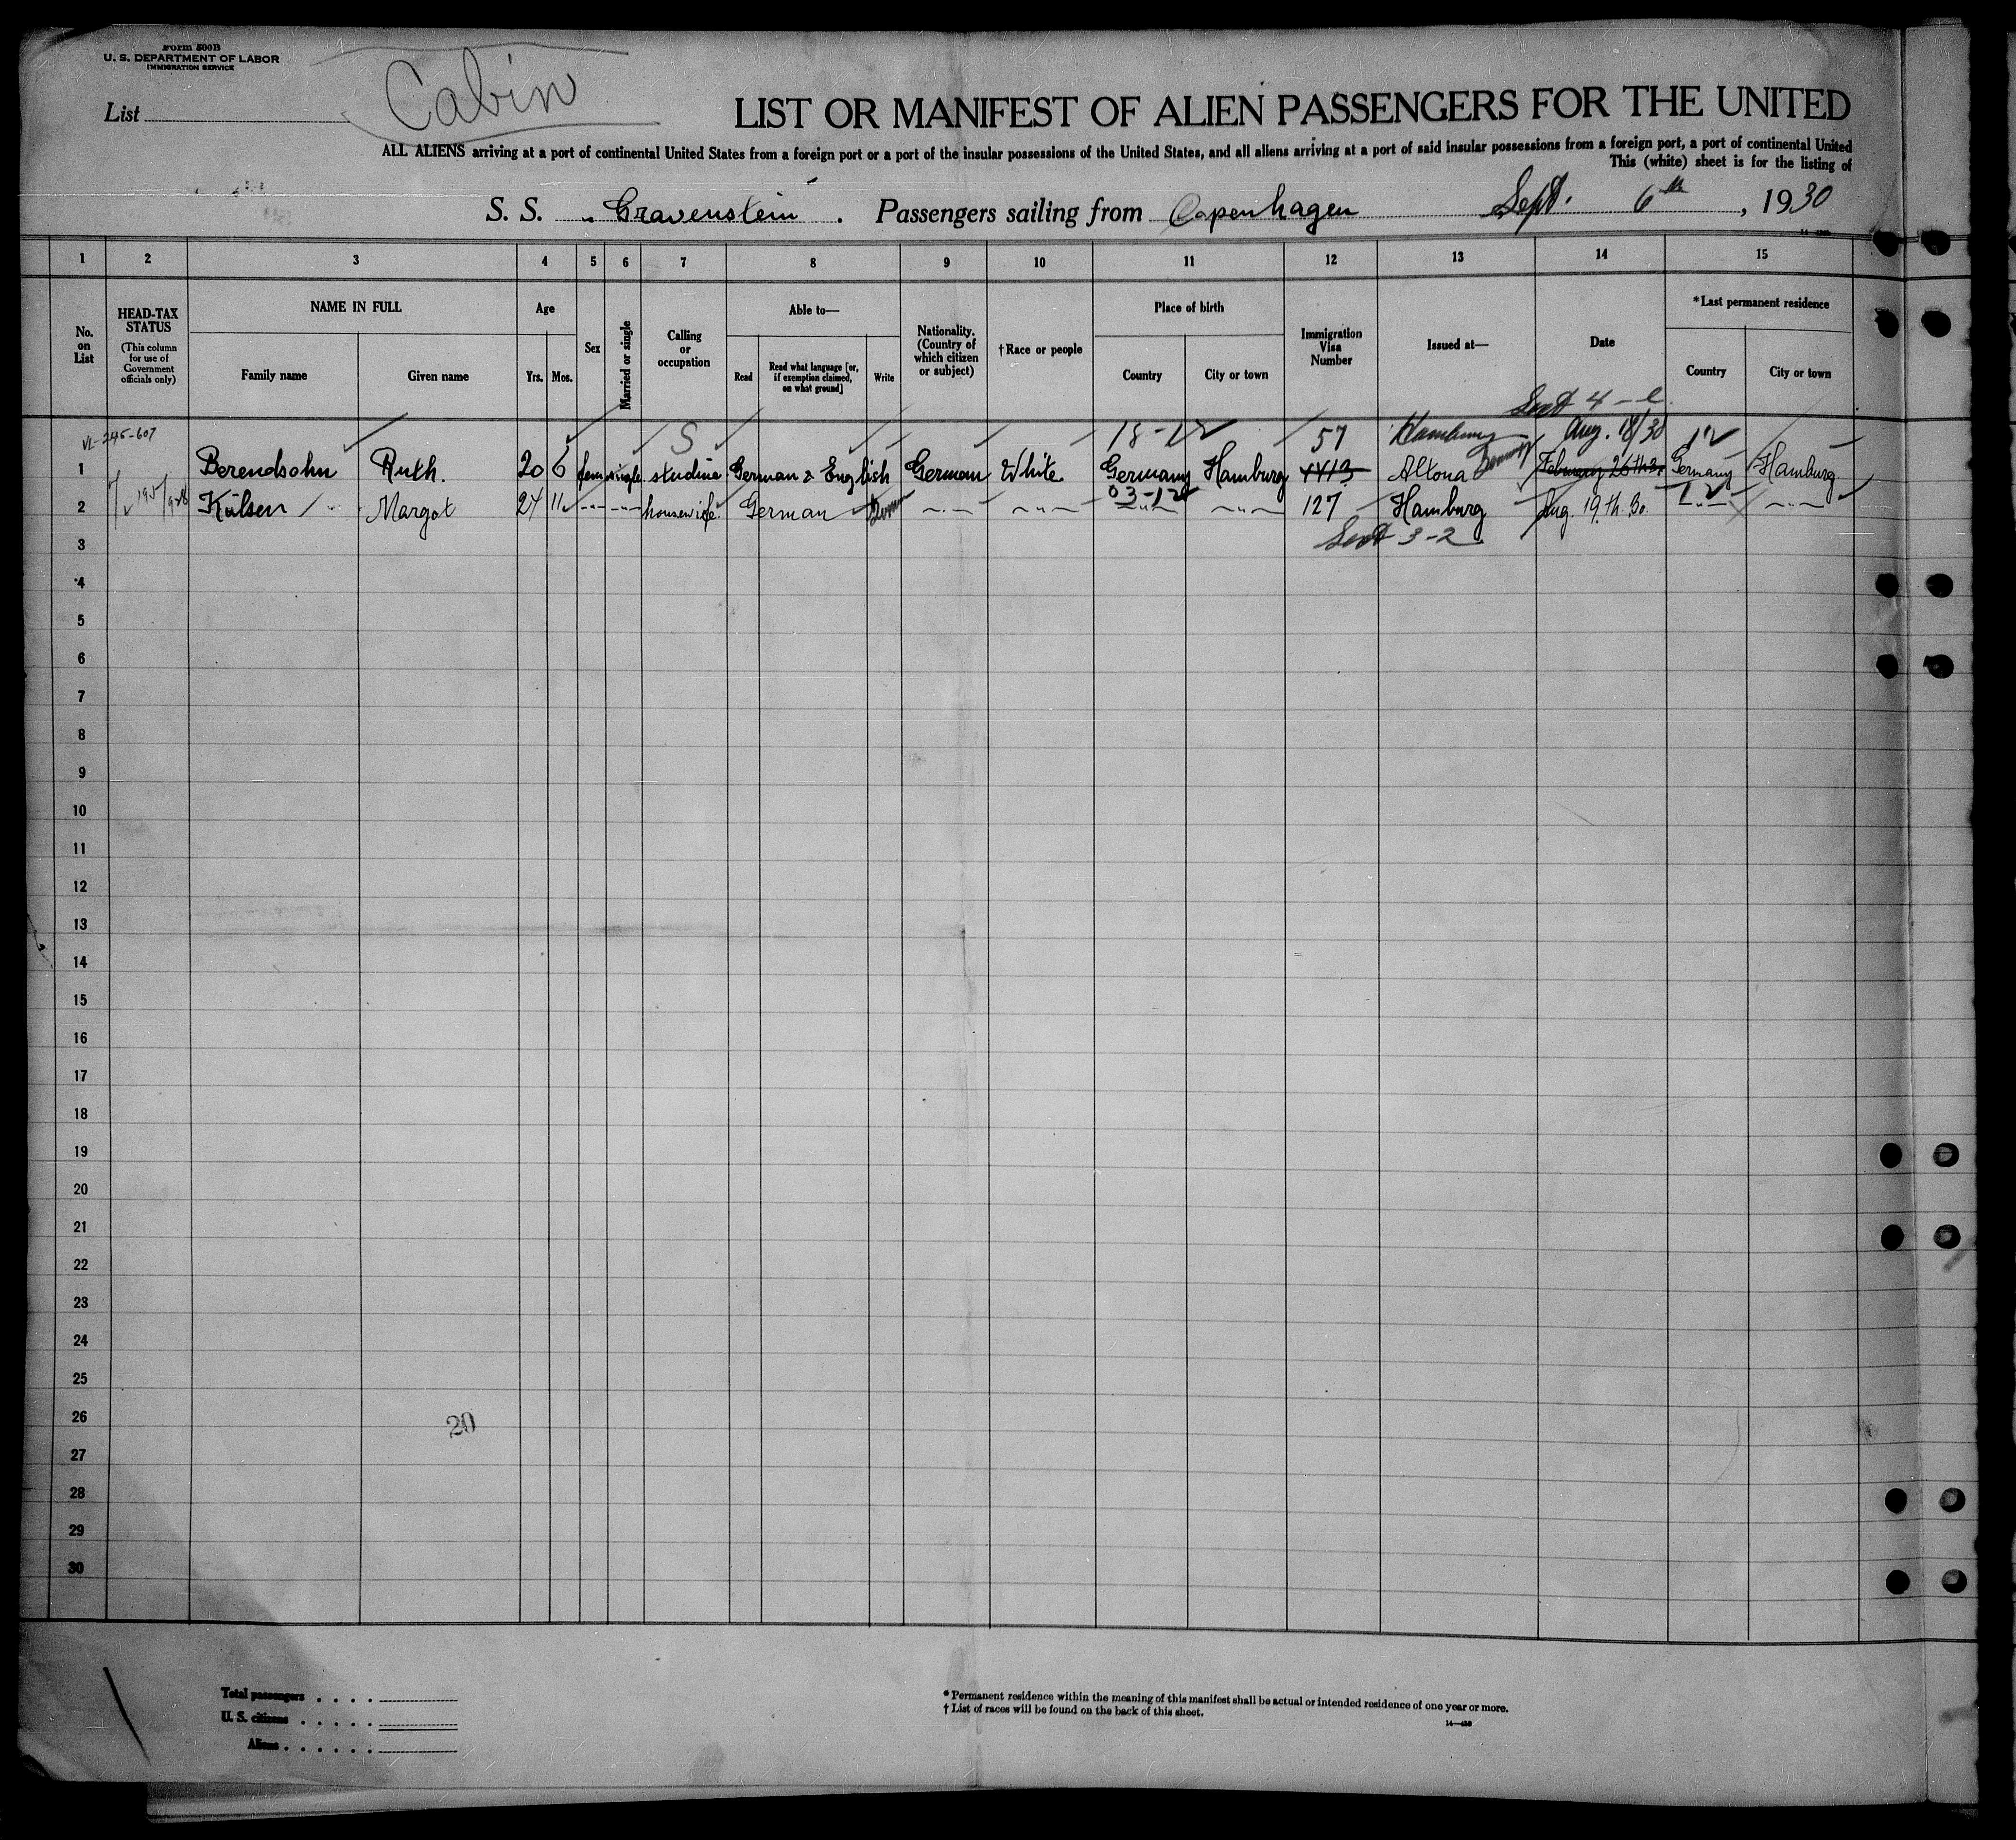 Form 500B
U. S. DEPARTMENT OF LABOR
IMMIGRATION SERVICE
List
Cabin
LIST OR MANIFEST OF ALIEN PASSENGERS FOR THE UNITED
ALL ALIENS arriving at a port of continental United States from a foreign port or a port of the insular possessions of the United States, and all aliens arriving at a port of said insular possessions from a foreign port, a port of continental United
This (white) sheet is for the listing of
S. S. Gravenstein. Passengers sailing from Copenhagen Sept. 6th, 1930
1 2 3 4 5 6 7 8 9 10 11 12 13 14 15
No. on List
HEAD-TAX STATUS
(This column for use of Government officials only)
NAME IN FULL
Family name Given name
Age
Yrs. Mos.
Sex
Married or single
Calling or occupation
Able to—
Read
Read what language [or, if exemption claimed, on what ground]
Write
Nationality. (Country of which citizen or subject)
†Race or people
Place of birth
Country City or town
Immigration Visa Number
Issued at—
Date
*Last permanent residence
Country City or town
Sept 4 - 2
VL-245-607 S 18-12 57 Hamburg Aug. 18/30 12
1 Berendsohn Ruth. 20 6 fem single German & English German White Germany Hamburg 4413 Altona February 26th 30 Germany Hamburg
03-12 12
2 Külsen Margot 24 11 housewife German 127 Hamburg Aug. 19.th. 30.
Sept 3-2
3
4
5
6
7
8
9
10
11
12
13
14
15
16
17
18
19
20
21
22
23
24
25
26
20
27
28
29
30
Total passengers . . . .
U. S. citizens . . . . .
Aliens . . . . . .
* Permanent residence within the meaning of this manifest shall be actual or intended residence of one year or more.
† List of races will be found on the back of this sheet.